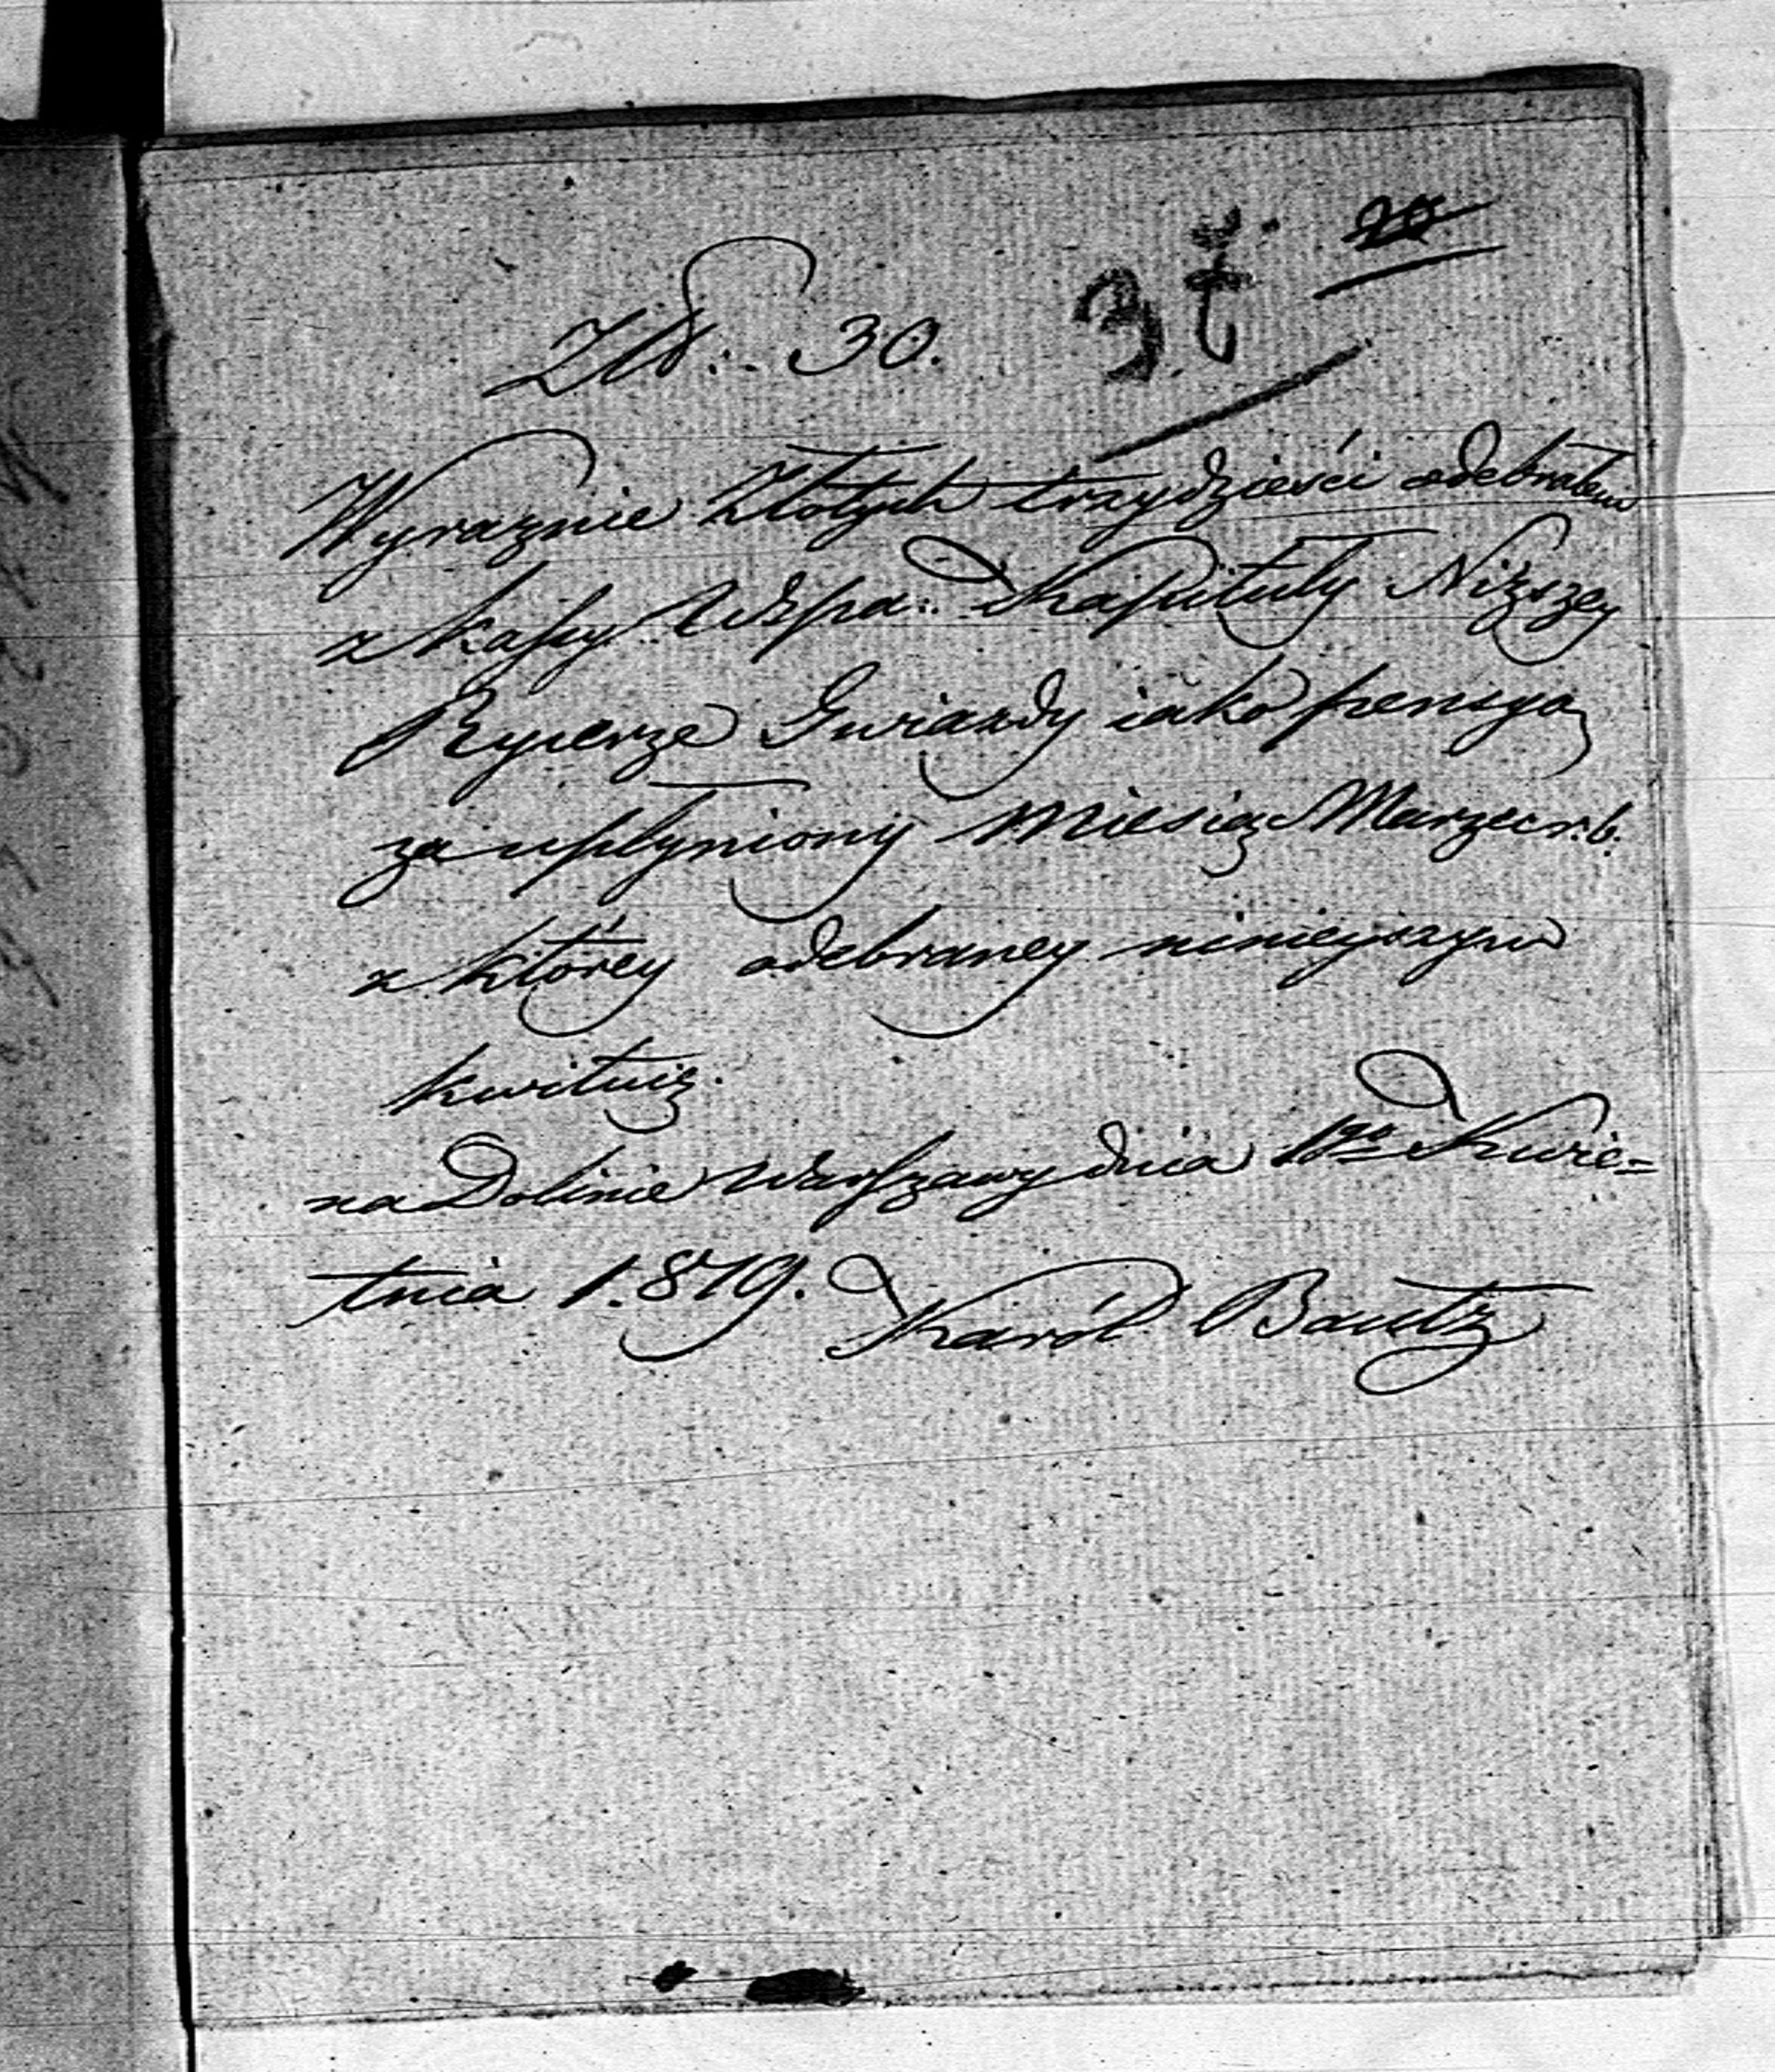 Złł:. 30.
Wyraznie Złotych trzydzieści odebrałem
z Kassy Wspa:. Kapituły Niższey
Rycerze Gwiazdy iako pensyą
za upłyniony Miesiąc Marzec r.b.
z którey odebraney ninieyszym
kwituię.
na Dolinie Warszawy dnia 1go Kwie=
tnia 1.819. Karól Bautz